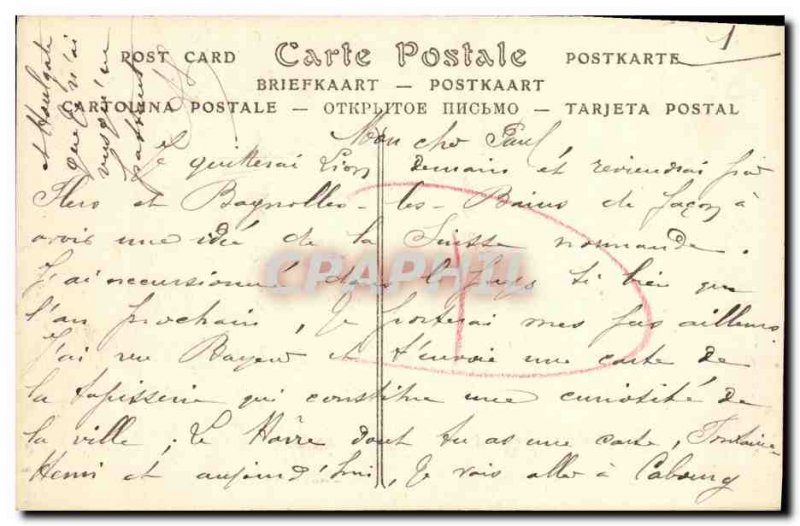 POST CARD Carte Postale POSTKARTE
BRIEFKAART — POSTKAART
CARTOLINA POSTALE — ОТКРЫТОЕ ПИСЬМО — TARJETA POSTAL
Mon cher Paul,
Je quitterai Lion demain et reviendrai par
Flers et Bagnolles-les-Bains de façon à
avoir une idée de la Suisse normande.
J'ai excursionné dans le pays si bien que
l'an prochain, je porterai mes pas ailleurs.
J'ai vu Bayeux et t'envoie une carte de
la tapisserie qui constitue une curiosité de
la ville ; Le Havre dont tu as une carte, Fontaine-
Henri et aujourd'hui, je vais aller à Cabourg
et Houlgate
que je n'ai
vus qu'en
passant
CPAPHIL